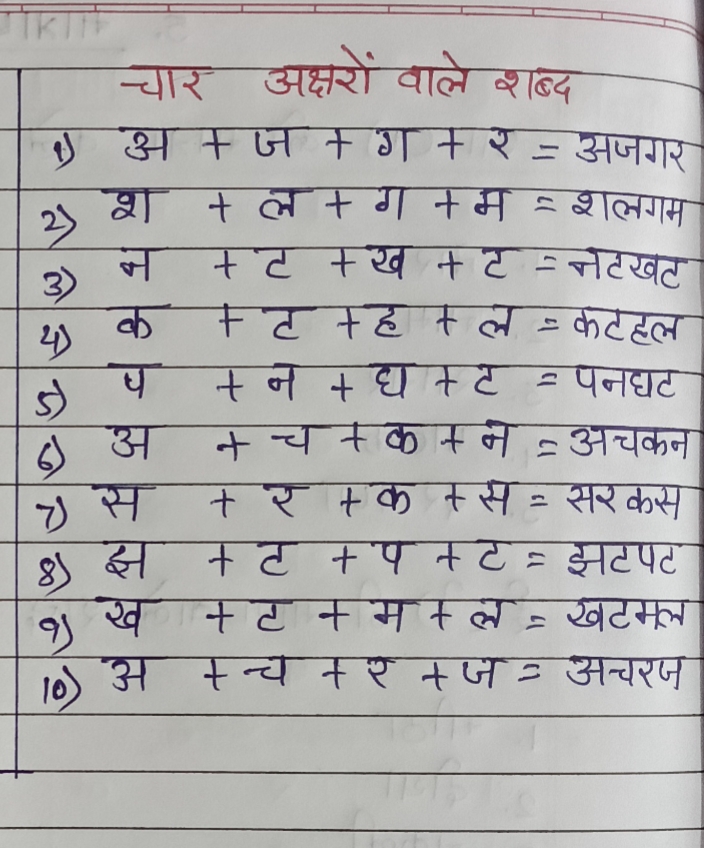 चार अक्षरों वाले शब्द
1) अ + ज + ग + र = अजगर
2) श + ल + ग + म = शलगम
3) न + ट + ख + ट = नटखट
4) क + ट + ह + ल = कटहल
5) प + न + घ + ट = पनघट
6) अ + च + क + न = अचकन
7) स + र + क + स = सरकस
8) झ + ट + प + ट = झटपट
9) ख + ट + म + ल = खटमल
10) अ + च + र + ज = अचरज